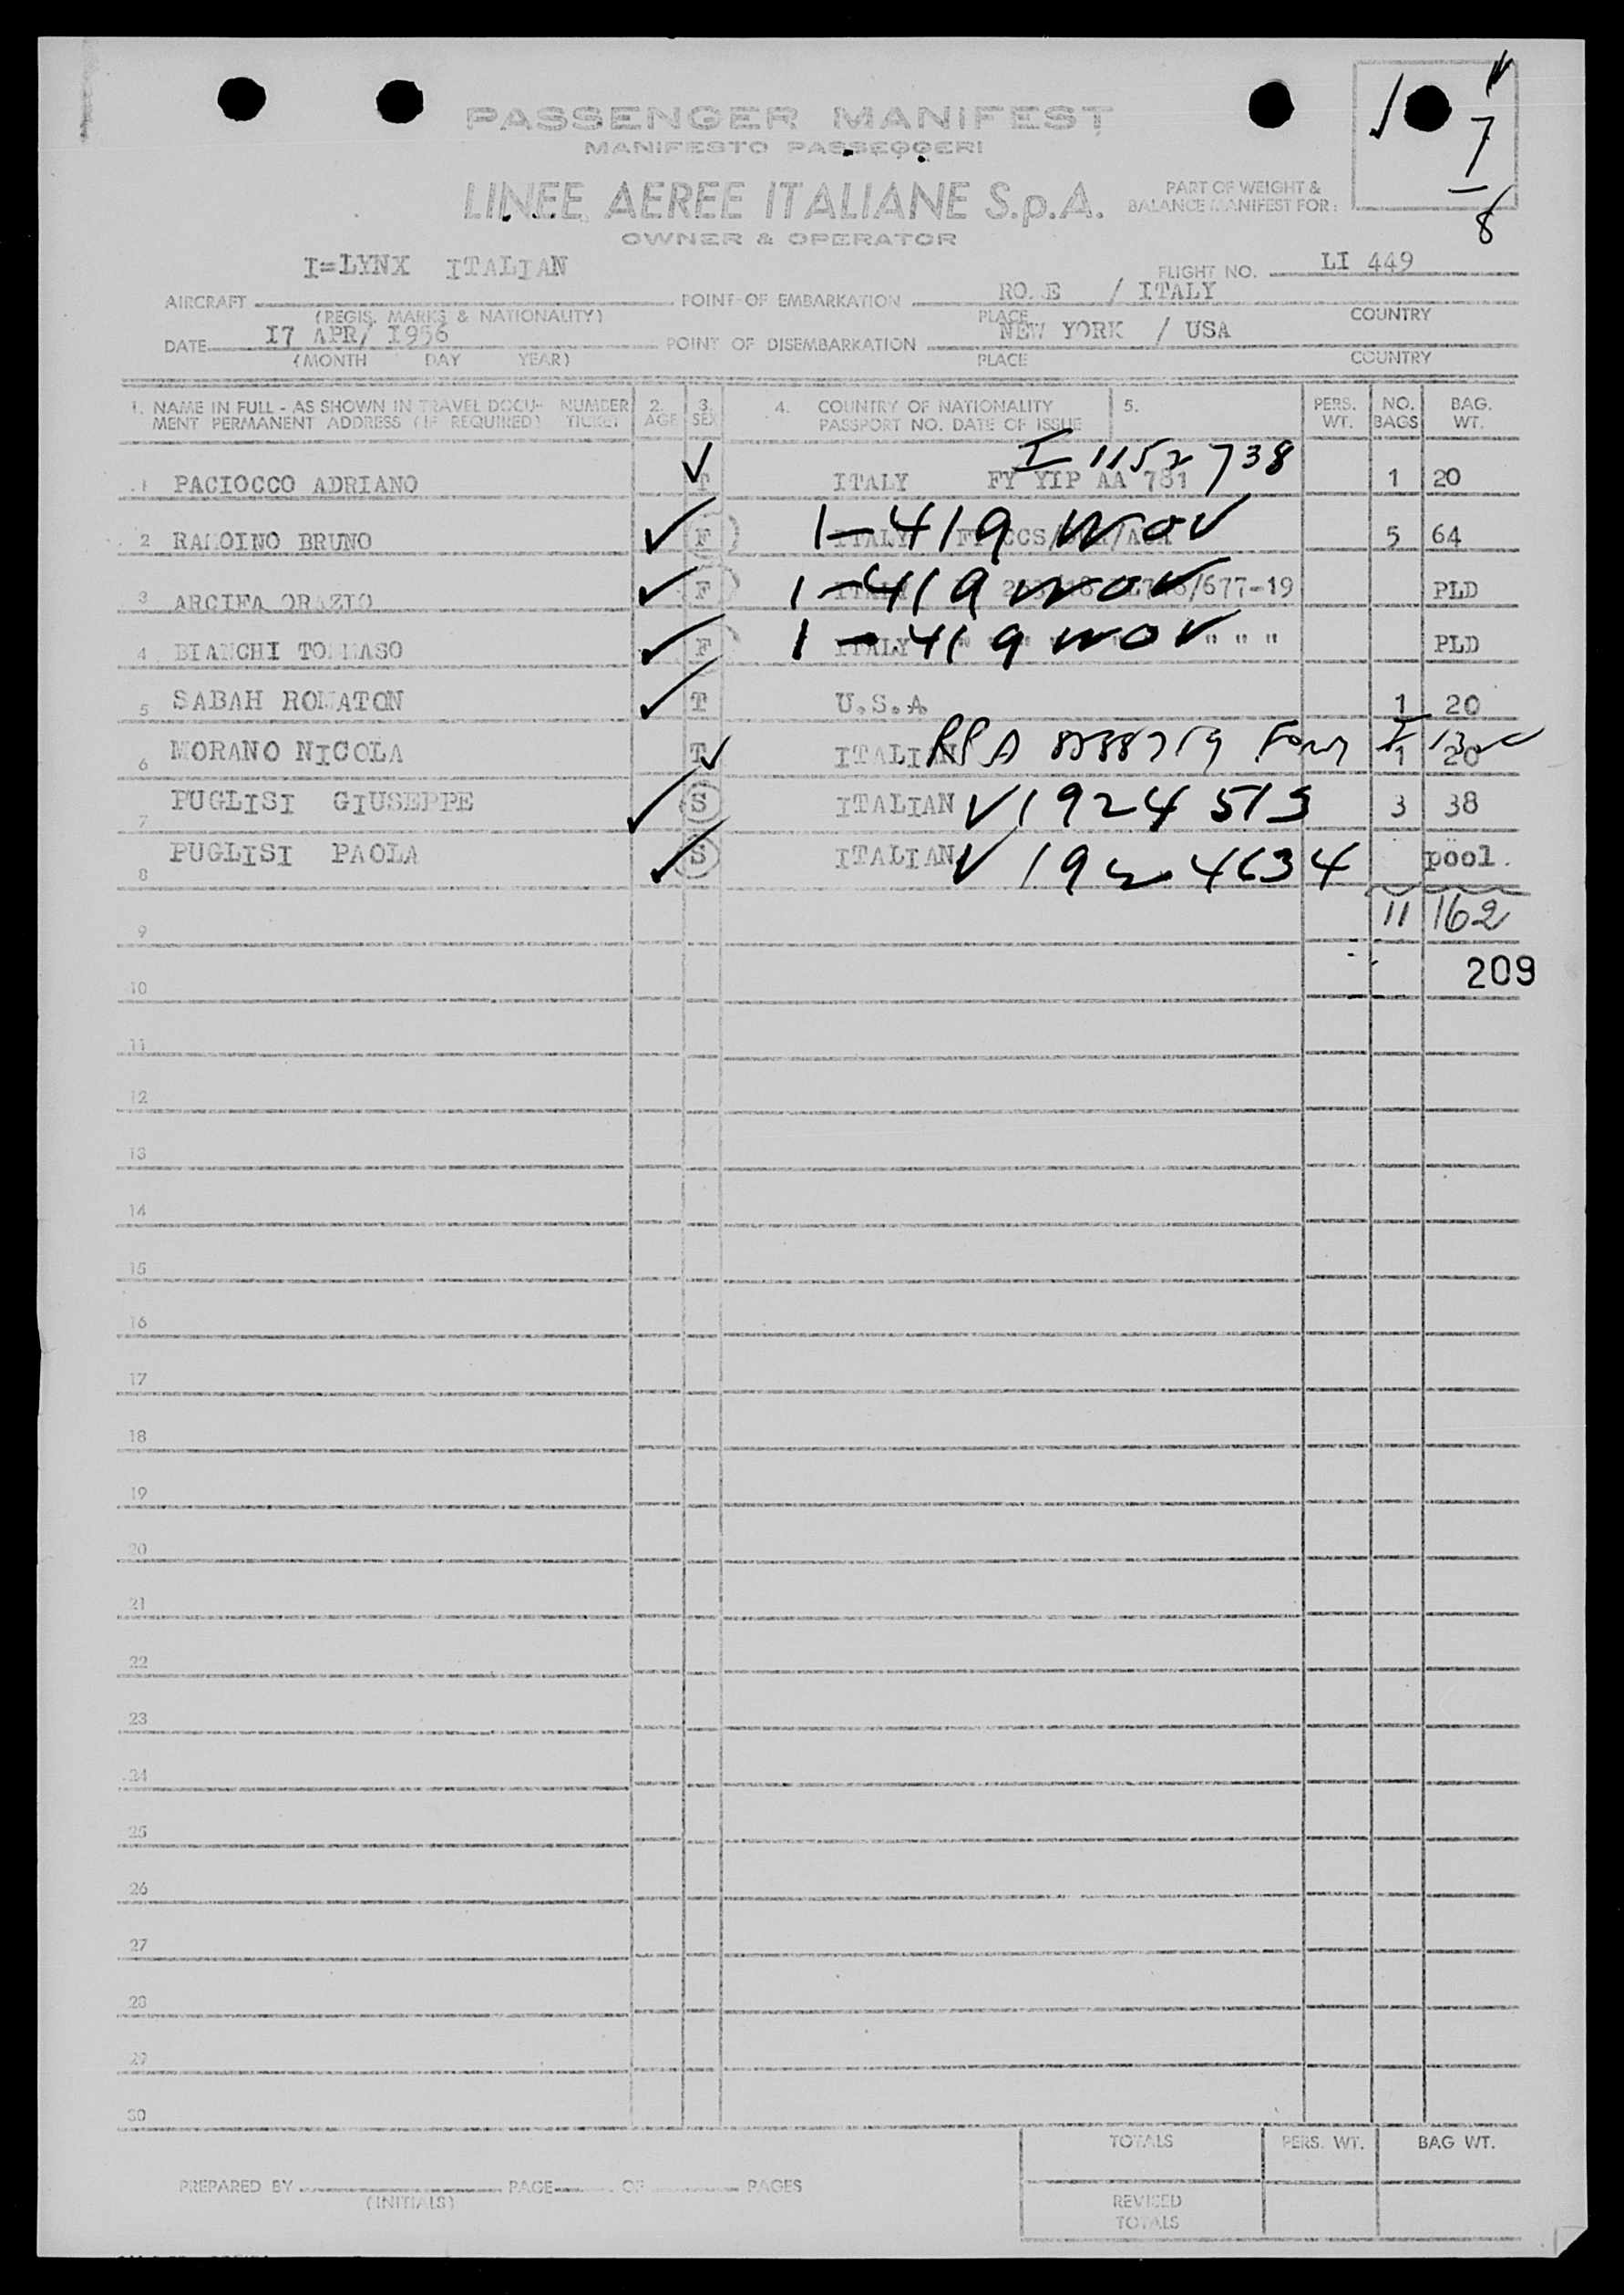 PASSENGER MANIFEST
MANIFESTO PASSEGGERI
LINEE AEREE ITALIANE S.p.A.
OWNER & OPERATOR
PART OF WEIGHT &
BALANCE MANIFEST FOR:
7
8
I=LYNX ITALIAN
FLIGHT NO. LI 449
AIRCRAFT
(REGIS. MARKS & NATIONALITY)
POINT OF EMBARKATION RO. E / ITALY
PLACE COUNTRY
DATE 17 APR/ 1956
(MONTH DAY YEAR)
POINT OF DISEMBARKATION NEW YORK / USA
PLACE COUNTRY
1. NAME IN FULL - AS SHOWN IN TRAVEL DOCU- NUMBER 2. 3. 4. COUNTRY OF NATIONALITY 5. PERS. NO. BAG.
MENT PERMANENT ADDRESS (IF REQUIRED) TICKET AGE SEX PASSPORT NO. DATE OF ISSUE WT. BAGS WT.
I 1152738
1 PACIOCCO ADRIANO T ITALY FY YIP AA 781 1 20
2 BRUNO F ITALY 1-419 WOV 5 64
3 ARCIFA ORAZIO F ITALY 1-419 WOV /677-19 PLD
4 BIANCHI TOMMASO F ITALY 1-419 WOV " " " PLD
5 SABAH T U.S.A 1 20
6 MORANO NICOLA T ITALIAN 1 20
7 PUGLISI GIUSEPPE S ITALIAN V1924513 3 38
8 PUGLISI PAOLA S ITALIAN V 1924634 pool.
9 11 162
209
10
11
12
13
14
15
16
17
18
19
20
21
22
23
24
25
26
27
28
29
30
TOTALS PERS. WT. BAG WT.
PREPARED BY PAGE OF PAGES
(INITIALS)
REVISED
TOTALS